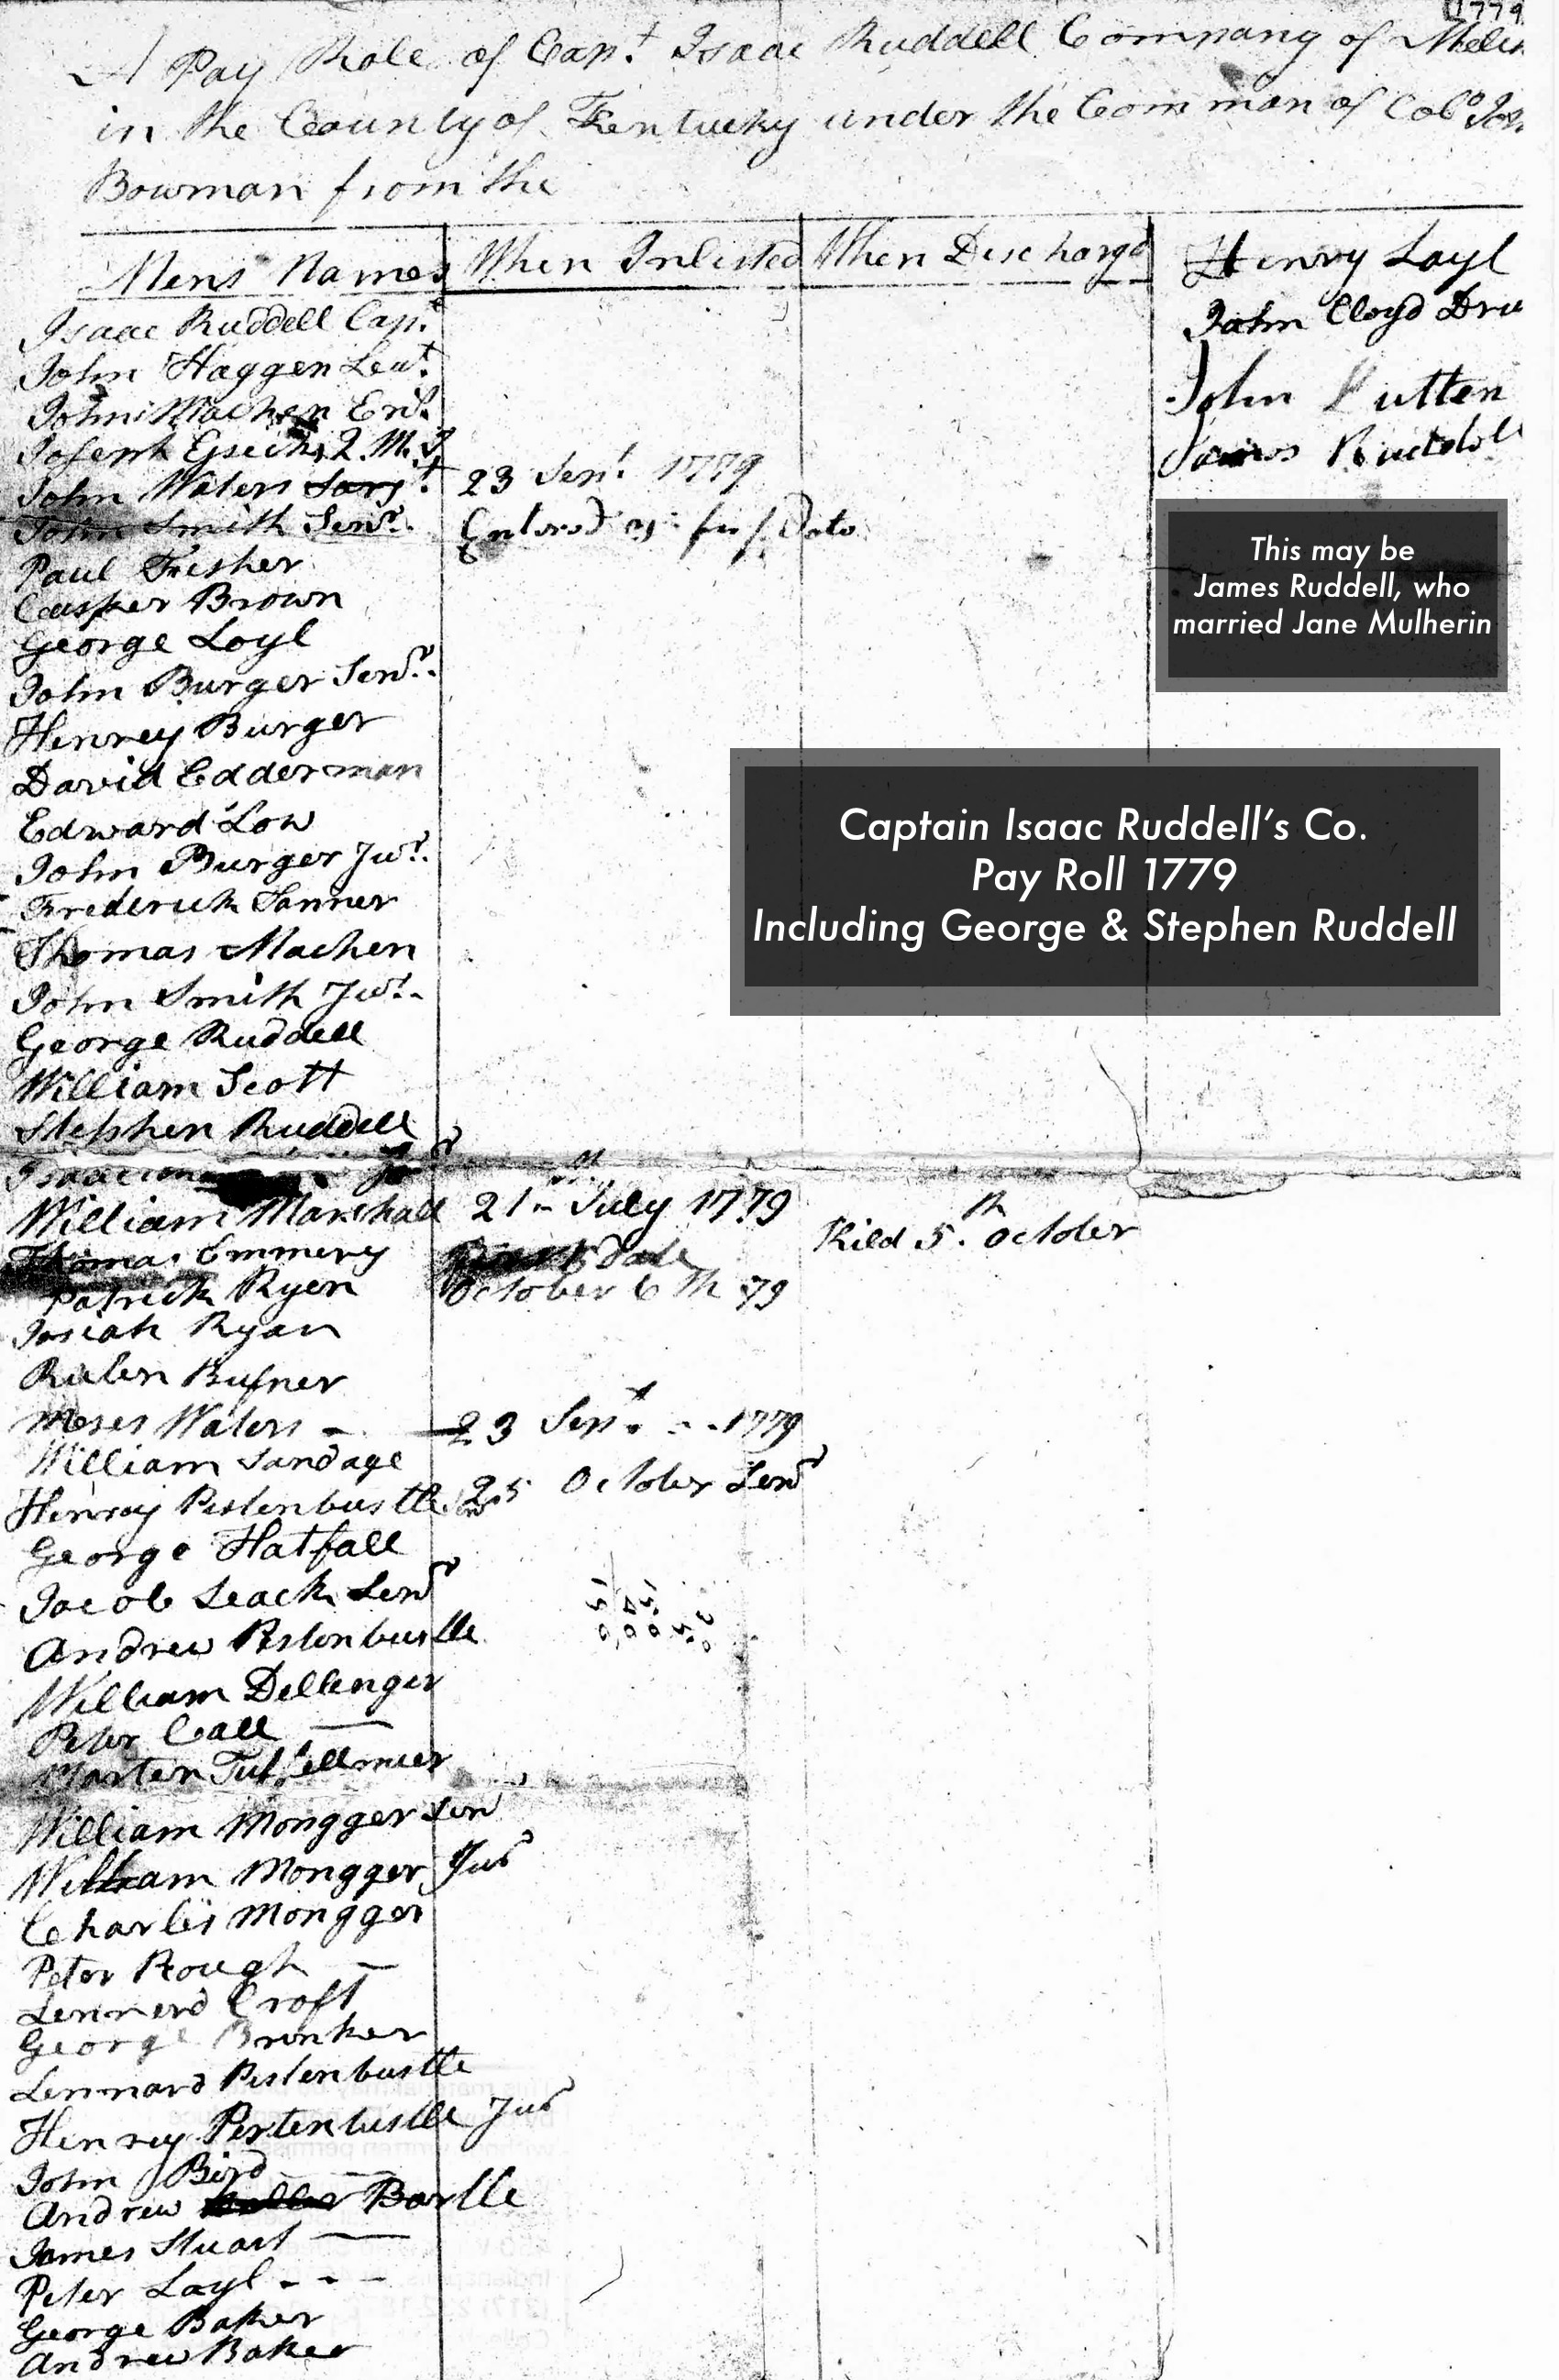 1779
A Pay Role of Capt. Isaac Ruddell Company of Melit
in the County of Kentucky under the Comman of Colo. Joh
Bowman from the
Mens Names When Inlisted When Dischargd
Isaac Ruddell Capt.
John Haggen Leut.
John Machen Ens.
Joseph Q.M.S
John Waters Sargt. 23 Sept. 1779
John Smith Senr. Entered as per Date
Paul Fisher
Casper Brown
George Loyl
John Burger Senr.
Henrey Burger
David Edderman
Edward Low
John Burger Jur.
Frederick Sanner
Thomas Machen
John Smith Jur.
George Ruddell
William Scott
Stephen Ruddell
Isaac
William Marshall 21st July 1779 Kild 5th. October
Thomas Emmery date
Patrick Ryen October 6th 79
Josiah Ryan
Ruben Bufner
Moses Waters 23 Sept. 1779
William Sandage
Henrey Pestenbustle Senr 25 October Senr
George Hatfall
Jacob Leach Senr
Andrew Pestonbustle
William Dellenger
Peter Call
Marten
William Mongger Senr
William Mongger Jur
Charles Mongger
Peter Rough
Lennerd Croft
George Bronker
Lennard Pestenbustle
Henrey Pestenbustle Jur
John Bird
Andrew Barlle
James Stuart
Peter Loyl
George Baker
Andrew Baker
Henry Loyl
John Cloyd Dru
John Dutten
James Ruddell
This may be
James Ruddell, who
married Jane Mulherin
Captain Isaac Ruddell's Co.
Pay Roll 1779
Including George & Stephen Ruddell